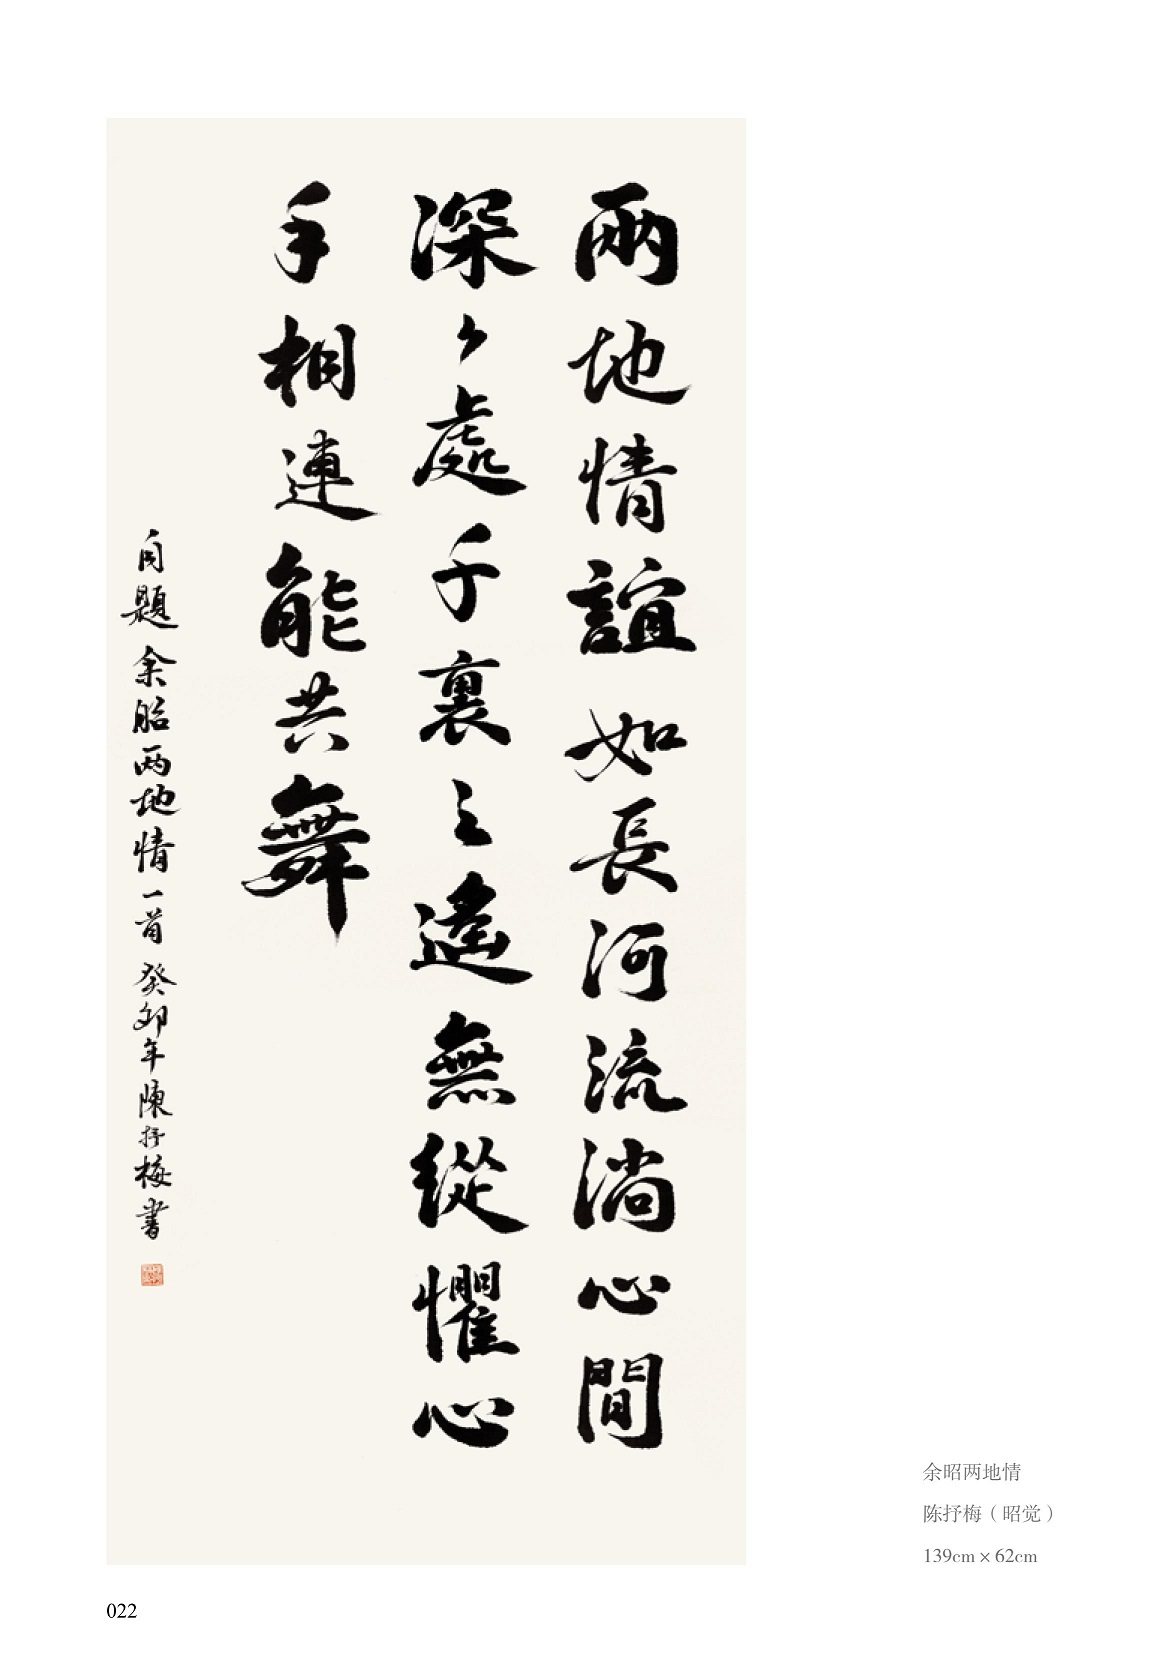 兩地情誼如長河流淌心間
深々處千裏之遙無從懼心
手相連能共舞
自題余昭两地情一首癸卯年陳抒梅書
余昭两地情
陈抒梅（昭觉）
139cm × 62cm
022